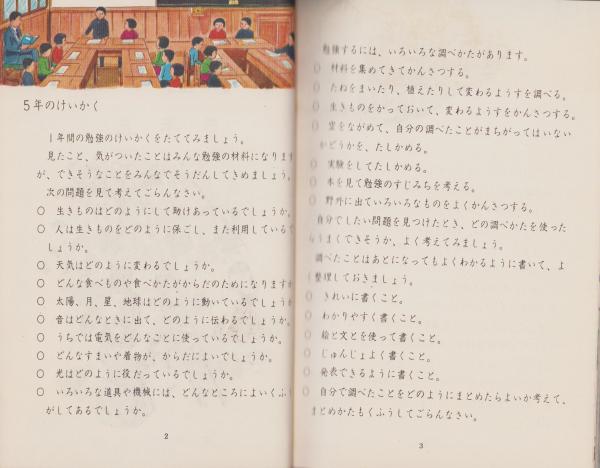 5年のけいかく
1年間の勉強のけいかくをたててみましょう。
見たこと、気がついたことはみんな勉強の材料になります
が、できそうなことをみんなでそうだんしてきめましょう。
次の問題を見て考えてごらんなさい。
○ 生きものはどのようにして助けあっているでしょうか。
○ 人は生きものをどのように保ごし、また利用しているで
しょうか。
○ 天気はどのように変わるでしょうか。
○ どんな食べものや食べかたがからだのためになりますか
○ 太陽、月、星、地球はどのように動いているでしょうか
○ 音はどんなときに出て、どのように伝わるでしょうか。
○ うちでは電気をどんなことに使っているでしょうか。
○ どんなすまいや着物が、からだによいでしょうか。
○ 光はどのように役だっているでしょうか。
○ いろいろな道具や機械には、どんなところによいくふう
がしてあるでしょうか。
2
勉強するには、いろいろな調べかたがあります。
○ 材料を集めてきてかんさつする。
○ たねをまいたり、植えたりして変わるようすを調べる。
○ 生きものをかっておいて、変わるようすをかんさつする。
○ 空をながめて、自分の調べたことがまちがってはいない
かどうかを、たしかめる。
○ 実験をしてたしかめる。
○ 本を見て勉強のすじみちを考える。
○ 野外に出ていろいろなものをよくかんさつする。
自分でしたい問題を見つけたとき、どの調べかたを使った
らうまくできそうか、よく考えてみましょう。
調べたことはあとになってもよくわかるように書いて、よ
く整理しておきましょう。
○ きれいに書くこと。
○ わかりやすく書くこと。
○ 絵と文とを使って書くこと。
○ じゅんじょよく書くこと。
○ 発表できるように書くこと。
○ 自分で調べたことをどのようにまとめたらよいか考えて、
まとめかたもくふうしてごらんなさい。
3